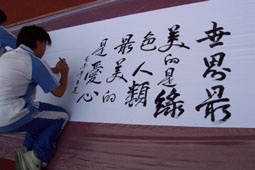 世界最
美的是綠
色人類
最美的
是愛心